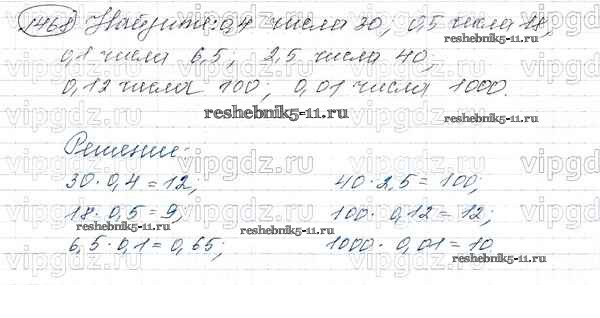 1468 Найдите: 0,4 числа 30, 0,5 числа 18,
reshebnik5-11.ru
0,1 числа 6,5; 2,5 числа 40;
vipgdz.ru vipgdz.ru vipgdz.ru
0,12 числа 100; 0,01 числа 1000.
reshebnik5-11.ru
reshebnik5-11.ru
Решение:
vipgdz.ru vipgdz.ru vipgdz.ru
30 · 0,4 = 12; 40 · 2,5 = 100;
18 · 0,5 = 9; 100 · 0,12 = 12;
vipgdz.ru vipgdz.ru vipgdz.ru
reshebnik5-11.ru reshebnik5-11.ru
6,5 · 0,1 = 0,65; 1000 · 0,01 = 10
reshebnik5-11.ru
vipgdz.ru vipgdz.ru vipgdz.ru